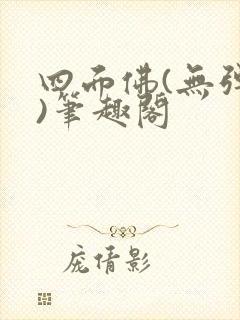 四而佛(無彈
)筆趣閣
庞倩影